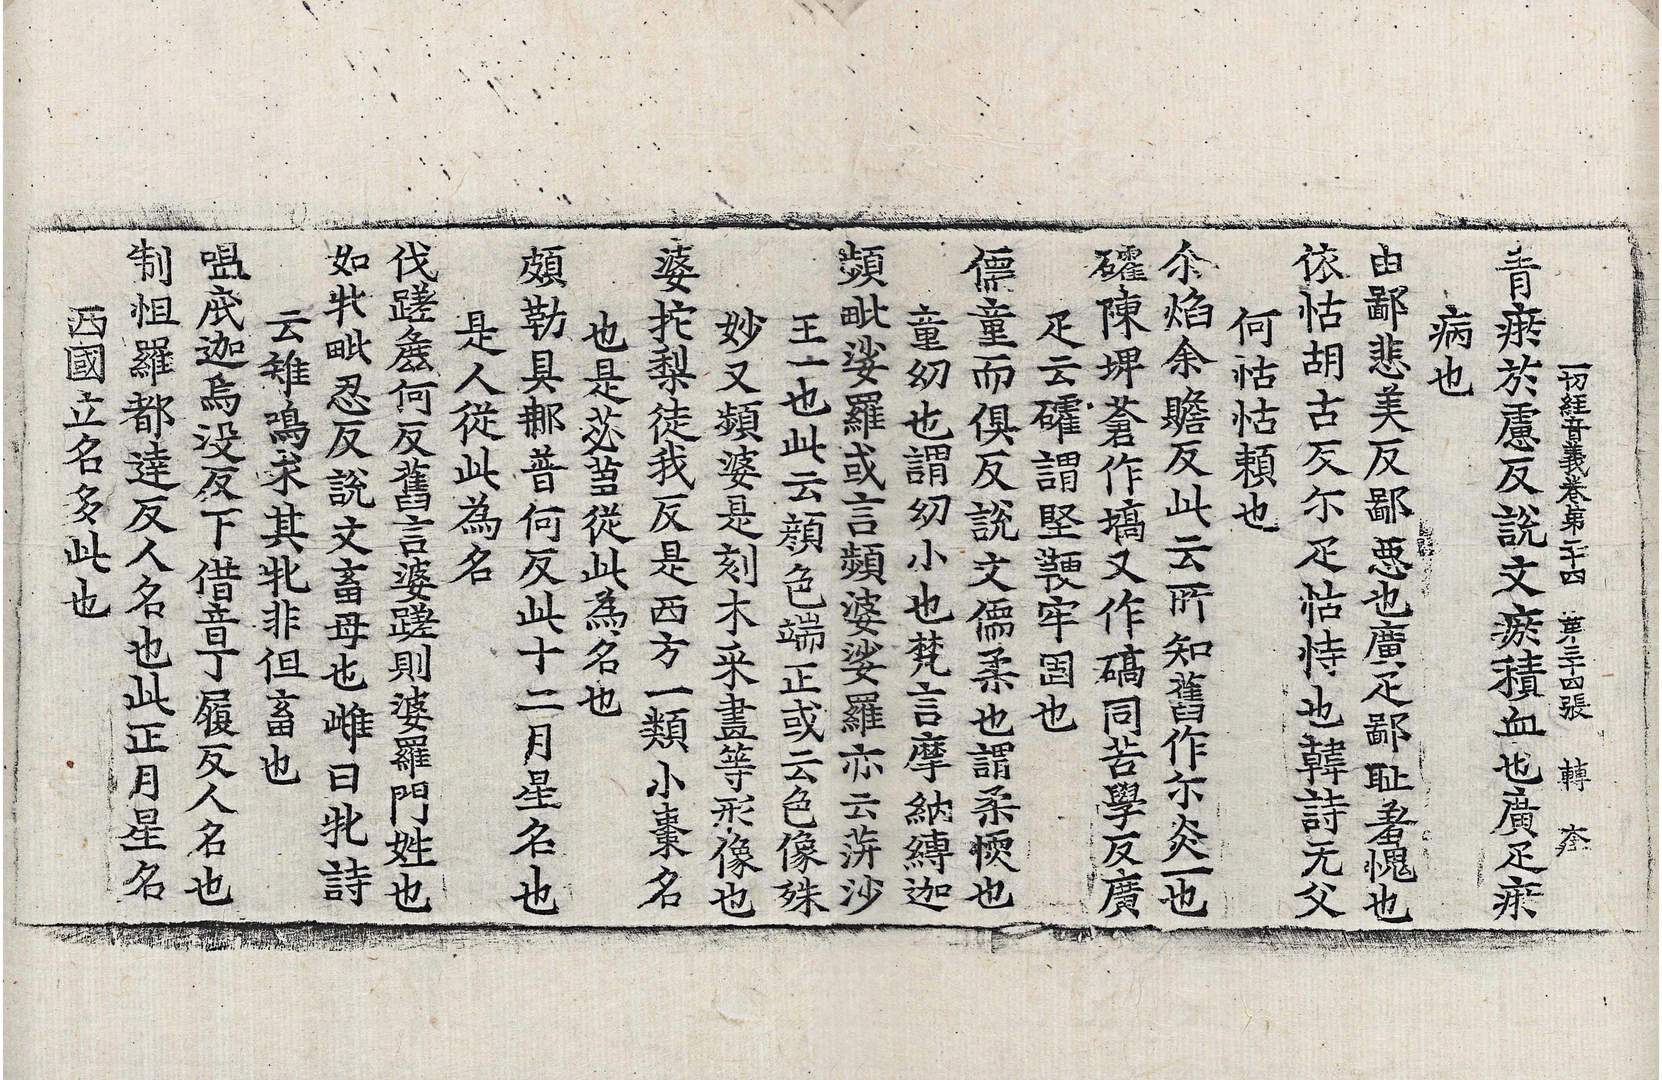 一切経音義卷第二十四 第三十四張 轉
青瘀於慮反說文瘀積血也廣疋瘀
病也
由鄙悲美反鄙惡也廣疋鄙耻羞愧也
依怙胡古反尓疋怙恃也韓詩无父
何怙怙頼也
尒焰余贍反此云所知舊作尒炎一也
礭陳埤蒼作塙又作碻同苦學反廣
疋云礭謂堅鞕牢固也
儒童而俱反說文儒柔也謂柔愞也
童幼也謂幼小也梵言摩納縛迦
頻毗娑羅或言頻婆娑羅亦云蓱沙
王一也此云顏色端正或云色像殊
妙又頻婆是刻木采畫等形像也
婆拕梨徒我反是西方一類小棗名
也是苾芻從此為名也
頗勒具那普何反此十二月星名也
是人從此為名
伐蹉麁何反舊言婆蹉則婆羅門姓也
如牝毗忍反說文畜母也雌曰牝詩
云雉鳴求其牝非但畜也
嗢底迦烏没反下借音丁履反人名也
制怛羅都達反人名也此正月星名
西國立名多此也